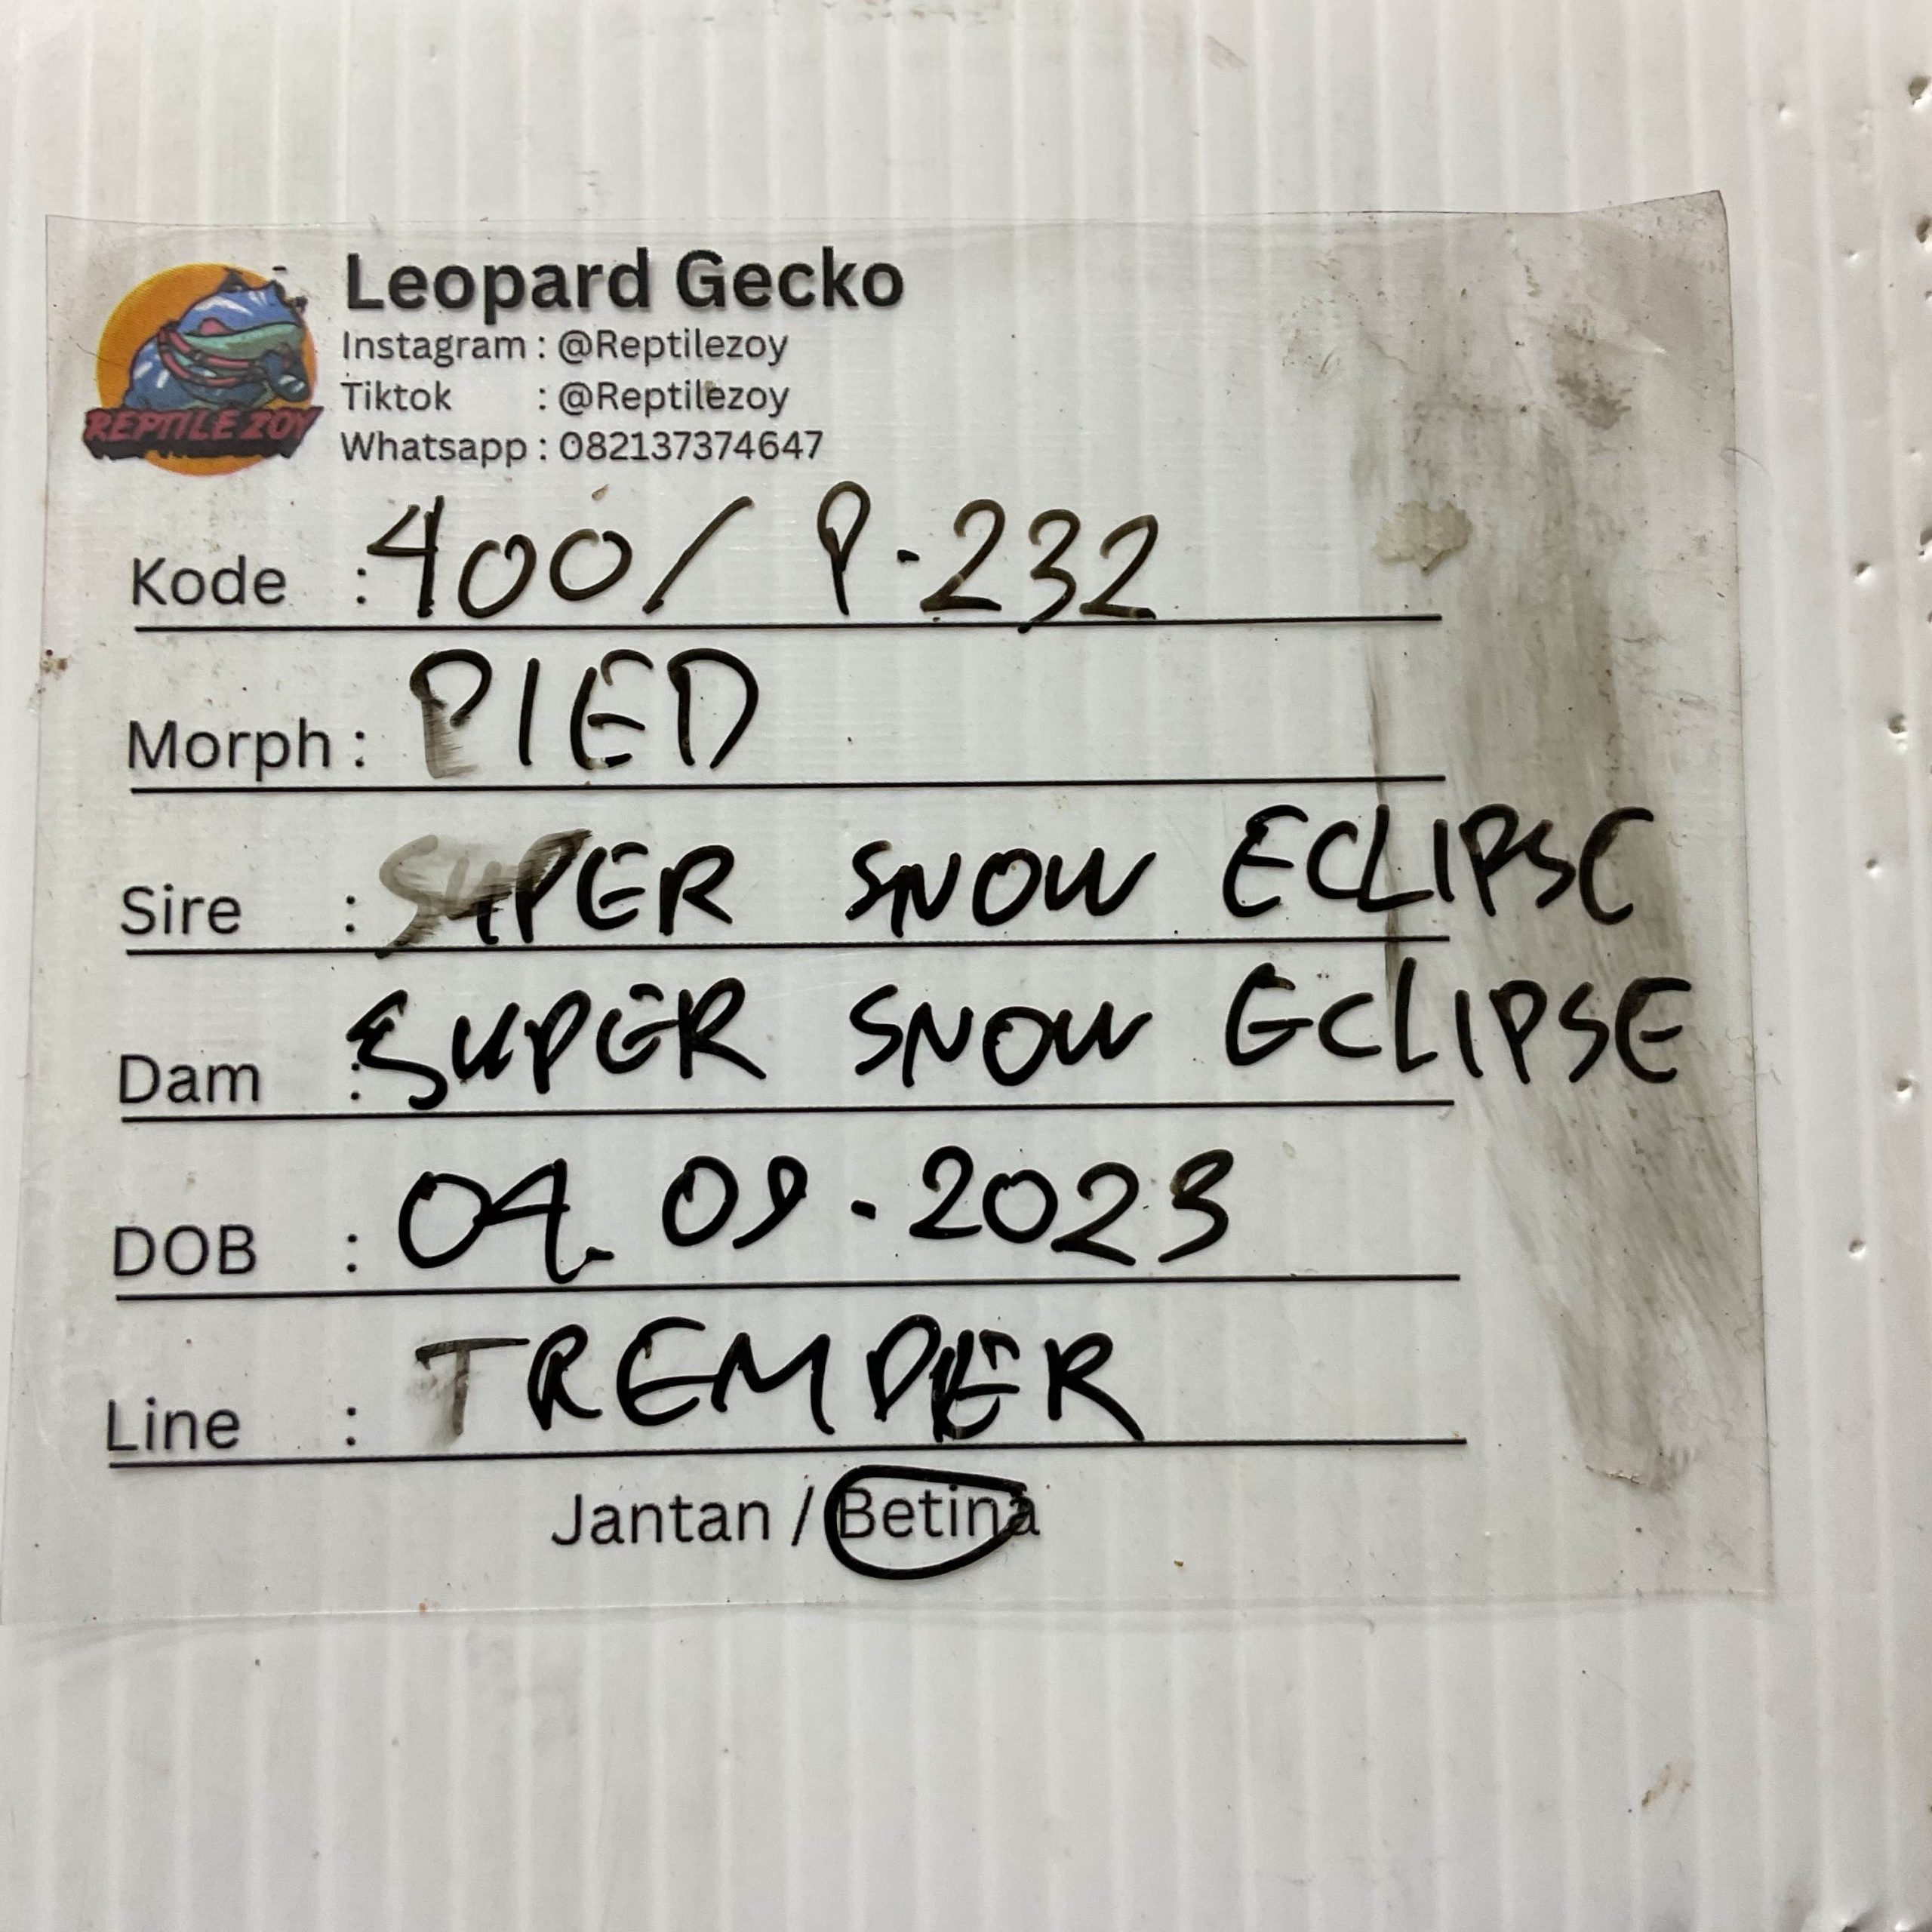 Leopard Gecko
Instagram : @Reptilezoy
Tiktok : @Reptilezoy
Whatsapp : 082137374647
REPTILE ZOY
Kode : 400 / P-232
Morph : PIED
Sire : SUPER SNOW ECLIPSE
Dam : SUPER SNOW ECLIPSE
DOB : 04. 09 . 2023
Line : TREMPER
Jantan / Betina